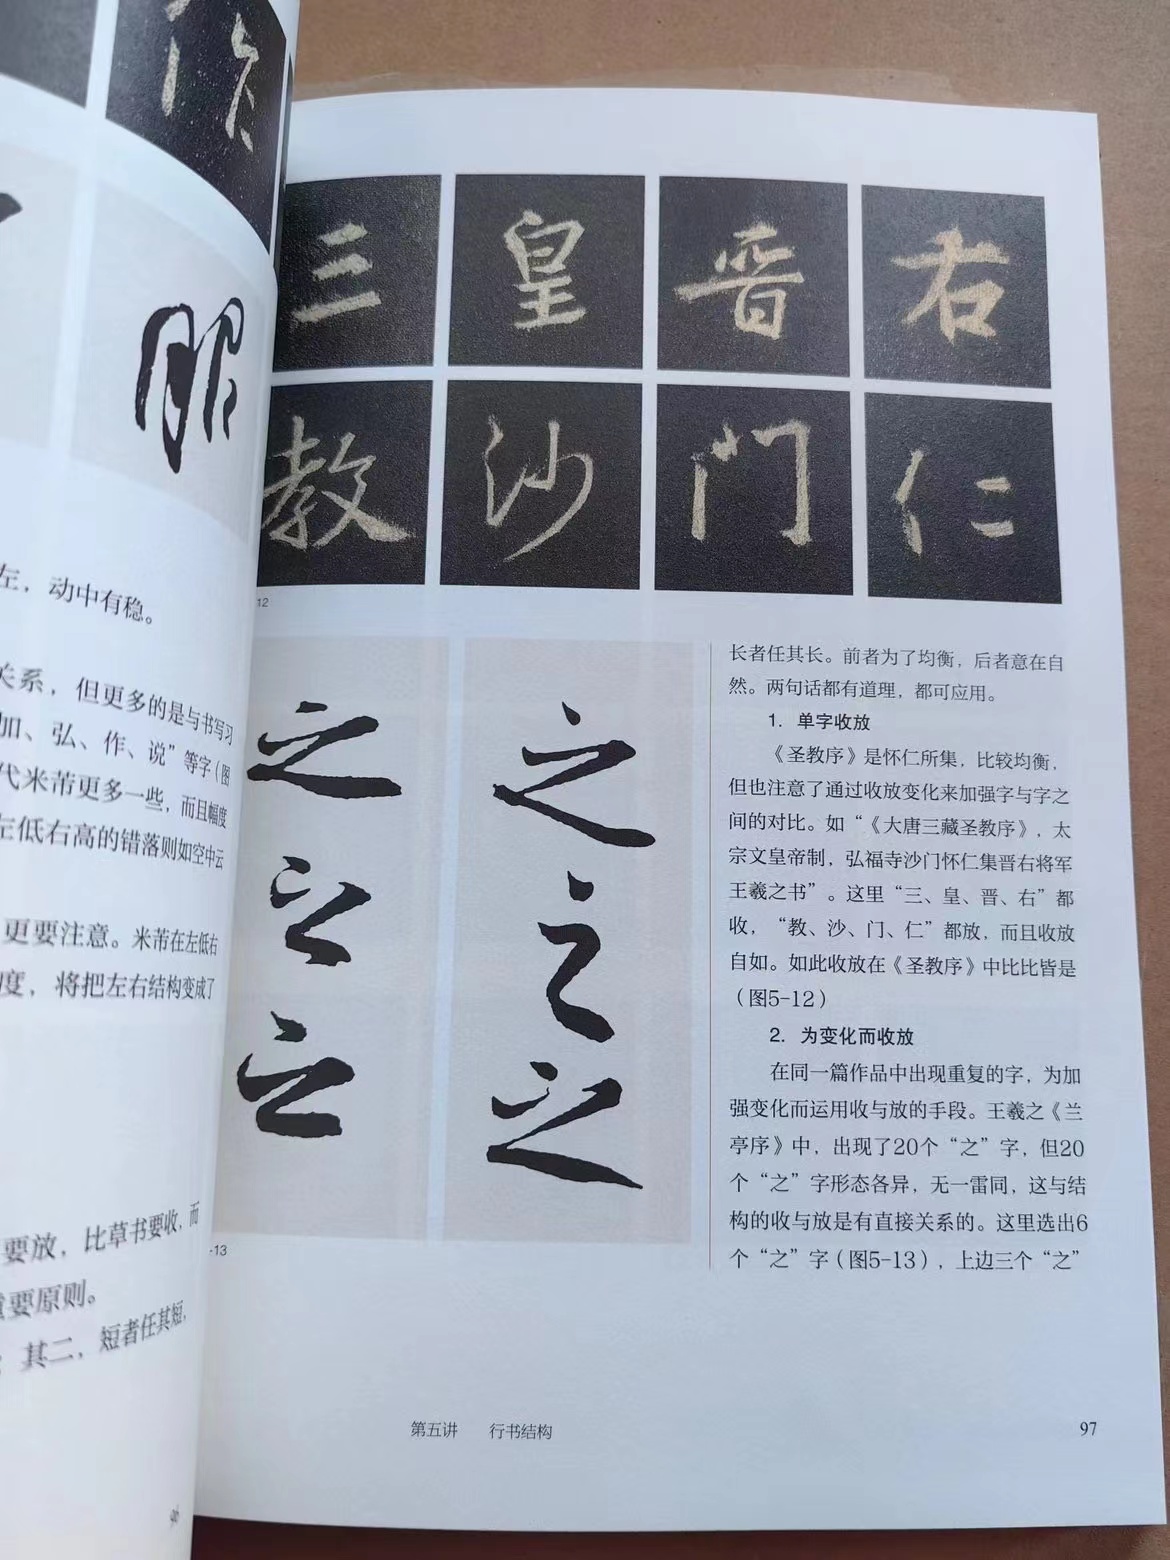 作
服
左，动中有稳。
关系，但更多的是与书写习
加、弘、作、说”等字（图
代米芾更多一些，而且幅度
左低右高的错落则如空中云
更要注意。米芾在左低右
度，将把左右结构变成了
要放，比草书要收，而
重要原则。
其二，短者任其短，
96
三 皇 晋 右
教 沙 门 仁
12
之 之
之 之
之 之
-13
长者任其长。前者为了均衡，后者意在自
然。两句话都有道理，都可应用。
1. 单字收放
《圣教序》是怀仁所集，比较均衡，
但也注意了通过收放变化来加强字与字之
间的对比。如“《大唐三藏圣教序》，太
宗文皇帝制，弘福寺沙门怀仁集晋右将军
王羲之书”。这里“三、皇、晋、右”都
收，“教、沙、门、仁”都放，而且收放
自如。如此收放在《圣教序》中比比皆是
（图5-12）
2. 为变化而收放
在同一篇作品中出现重复的字，为加
强变化而运用收与放的手段。王羲之《兰
亭序》中，出现了20个“之”字，但20
个“之”字形态各异，无一雷同，这与结
构的收与放是有直接关系的。这里选出6
个“之”字（图5-13），上边三个“之”
第五讲 行书结构
97